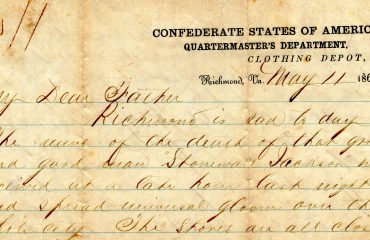 CONFEDERATE STATES OF AMERIC
QUARTERMASTER'S DEPARTMENT,
CLOTHING DEPOT,
Richmond, Va. May 11 186
My Dear Father
Richmond is sad to day
The news of the death of that gre
and good man Stonewall Jackson
ceived at a late hour last night
d spread universal gloom over th
city. The stores are all clos